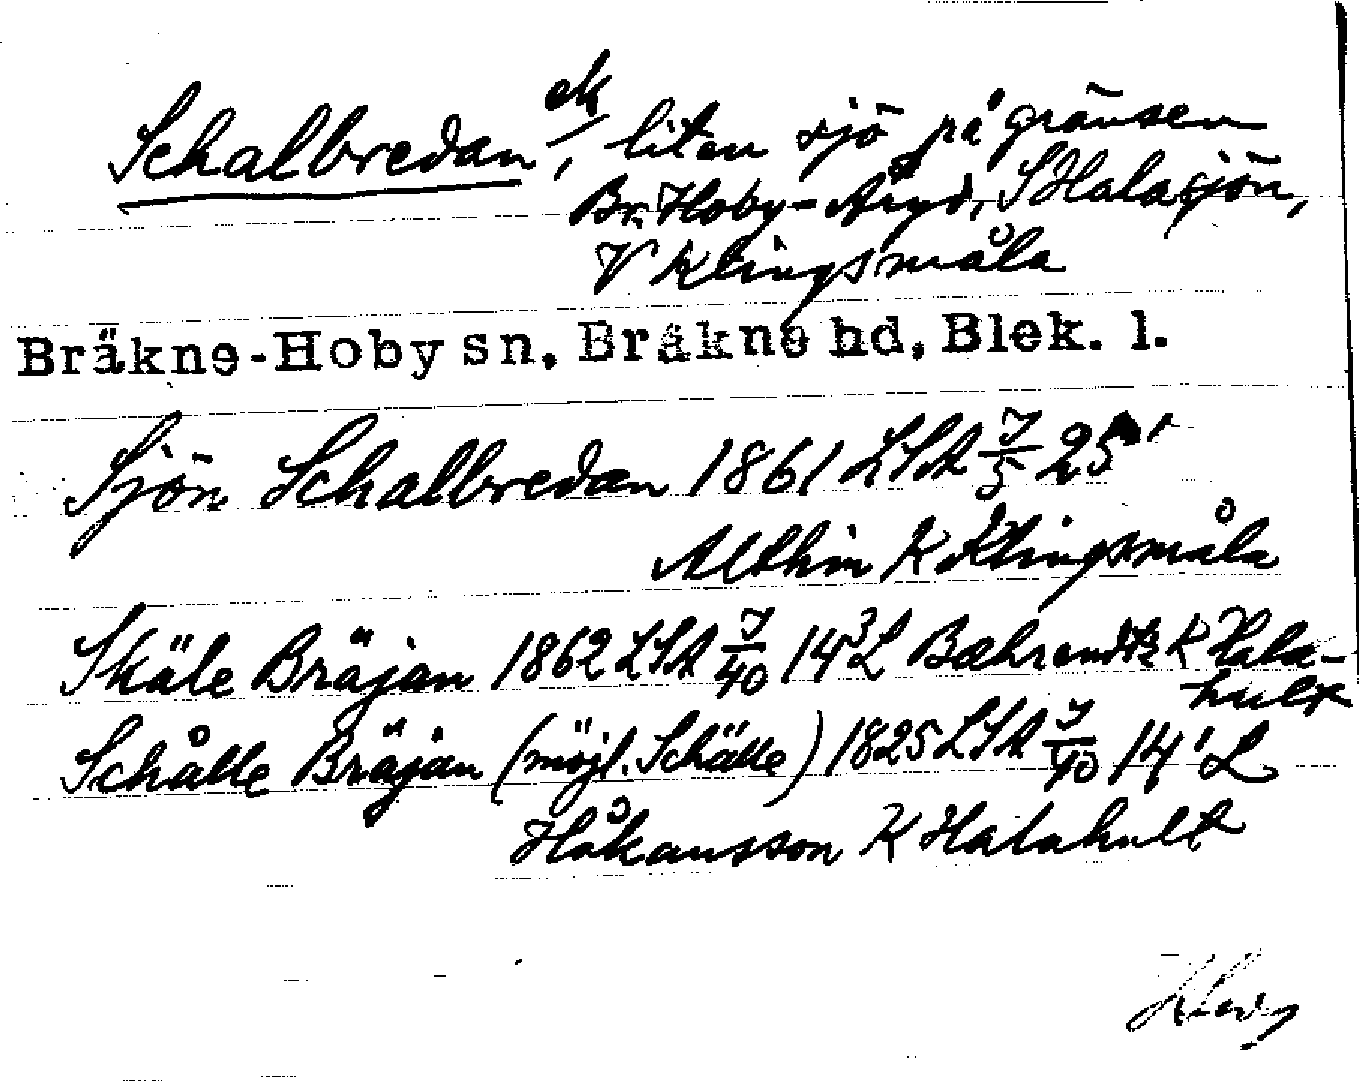 Schalbredan ek/, liten sjö på gränsen
Br. Hoby-Åryd, S Halasjön,
V Klingsmåla
Bräkne-Hoby sn, Bräkne hd, Blek. l.
Sjön Schalbredan 1861 LSA J/5 25¹
Althin K Klingsmåla
Skäle Bräjan 1862 LSA J/40 14³ L Bæhrendtz K Hala-
hult
Schålle Bräjan (möjl. Schälle) 1825 LSA J/40 14¹ L
Håkansson K Halahult